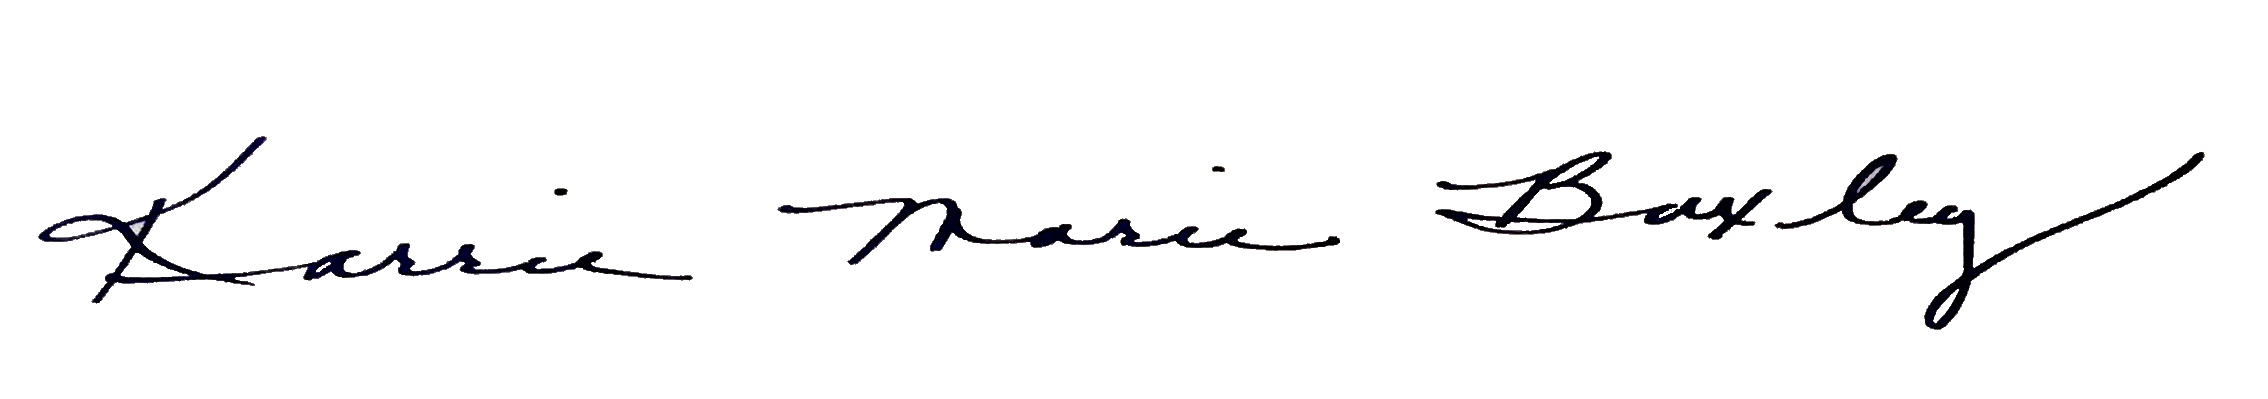 Karrie Marie Baxley